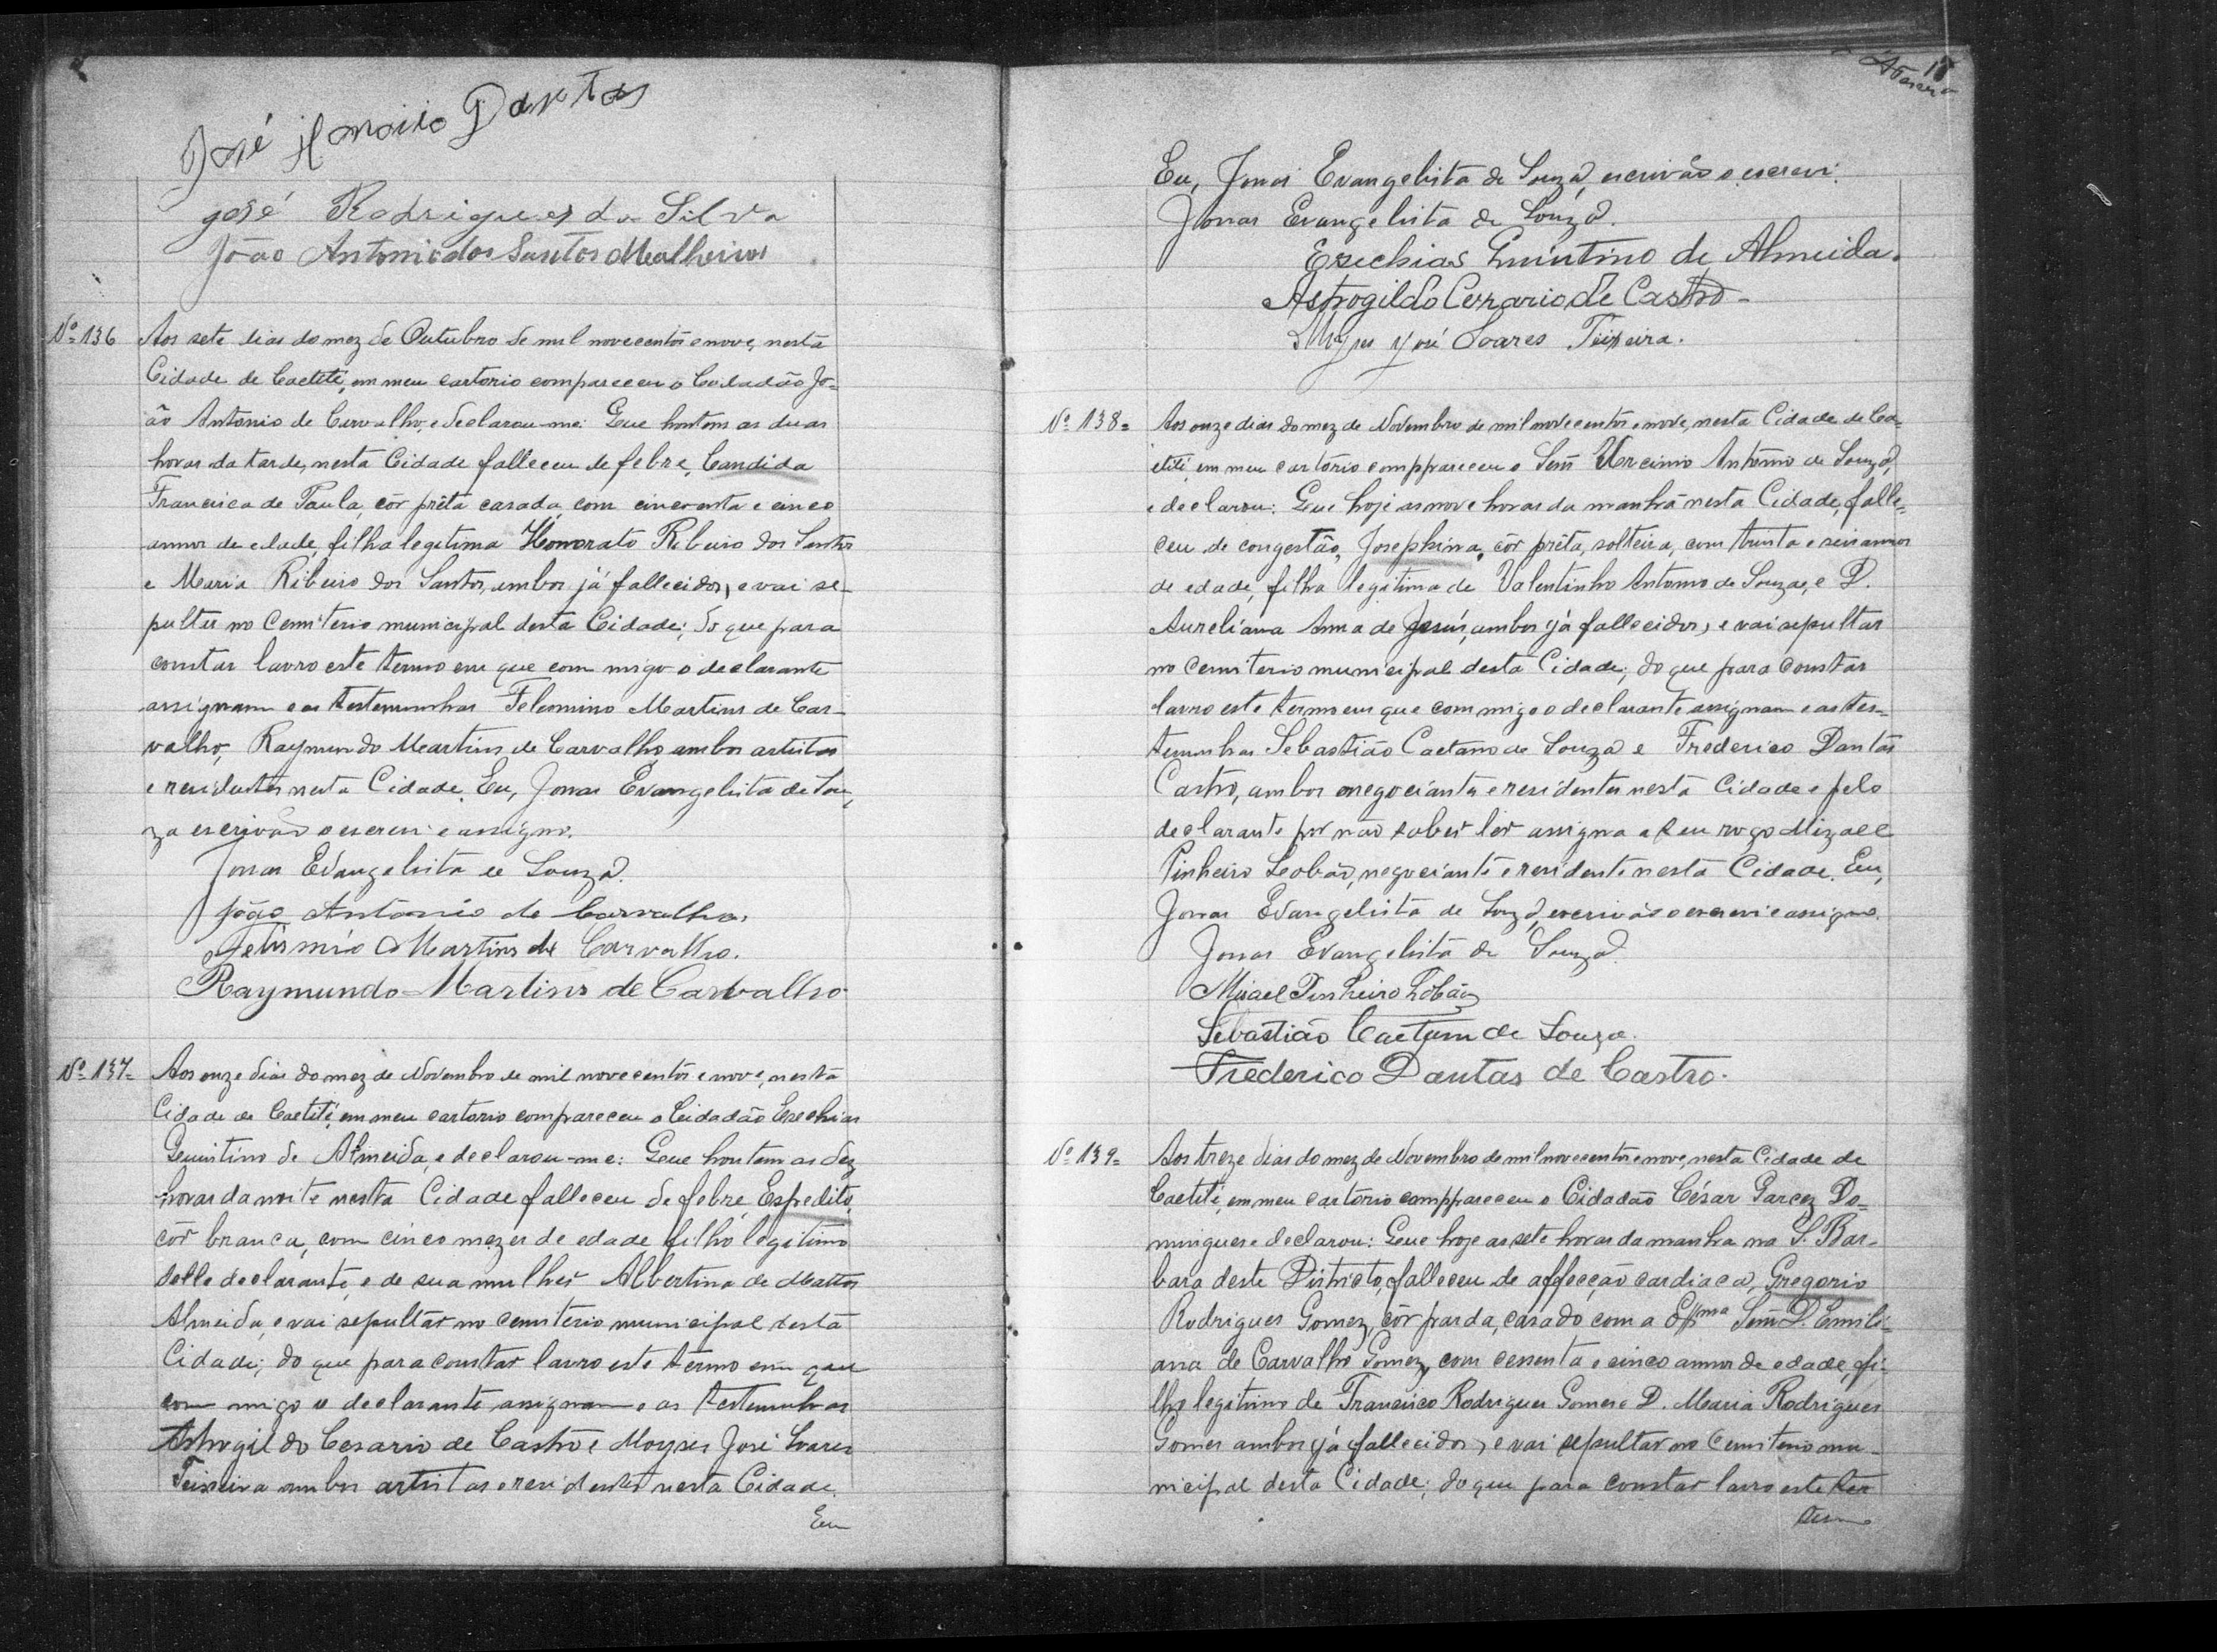 José Honorio Dantas
José Rodrigues da Silva
João Antonio dos Santos Malheiros
Nº 136 Aos sete dias do mez de Outubro de mil novecentos e nove, nesta
Cidade de Caetité, em meu cartorio compareceu o Cidadão Jo-
ão Antonio de Carvalho, e declarou-me: Que hontem as duas
horas da tarde, nesta Cidade falleceu de febre, Candida
Francisca de Paula, côr prêta casada, com cincoenta e cinco
annos de edade, filha legitima Honorato Ribeiro dos Santos
e Maria Ribeiro dos Santos, ambos já fallecidos, e vai se-
pultar no Cemiterio municipal desta Cidade; do que para
constar lavro este termo em que com migo o declarante
assignam e as testemunhas Felismino Martins de Car-
valho, Raymundo Martins de Carvalho, ambos artistas
e residentes nesta Cidade. Eu, Jonas Evangelista de Sou-
za escrivão o escrevi e assigno.
Jonas Evangelista de Souza.
João Antonio de Carvalho.
Felismino Martins de Carvalho.
Raymundo Martins de Carvalho
Nº 137= Aos onze dias do mez de Novembro de mil novecentos e nove, nesta
Cidade de Caetité, em meu cartorio compareceu o Cidadão Esechias
Quintino de Almeida, e declarou-me: Que hontem as dez
horas da noite nesta Cidade falleceu de febre, Espedito,
côr branca, com cinco mezes de edade filho legitimo
delle declarante, e de sua mulher Albertina de Mattos
Almeida, e vai sepultar no cemiterio municipal desta
Cidade; do que para constar lavro este termo em que
com migo o declarante, assignam e as testemunhas
Astrogildo Cesario de Castro e Moyses José Soares
Teixeira ambos artistas e residentes nesta Cidade.
Eu
17
Eu, Jonas Evangelista de Souza, escrivão o escrevi.
Jonas Evangelista de Souza.
Ezechias Quintino de Almeida.
Astrogildo Cezario de Castro-
Moyses José Soares Teixeira.
Nº 138= Aos onze dias do mez de Novembro de mil novecentos e nove, nesta Cidade de Ca-
etité em meu cartorio comppareceu o Senr Ursinio Antonio de Souza,
e declarou: Que hoje as nove horas da manhã nesta Cidade, falle-
ceu de congestão, Josephina, côr prêta, solteira, com trinta e seis annos
de edade, filha legitima de Valentinho Antonio de Souza, e D.
Aureliana Anna de Jesus, ambos já fallecidos, e vai sepultar
no cemiterio municipal desta Cidade; do que para constar
lavro este termo em que com migo o declarante assignam e as tes-
temunhas Sebastião Caetano de Souza e Frederico Dantas
Castro, ambos negociantes e residentes nesta Cidade e pelo
declarante por não saber ler assigna a seu rogo Mizael
Pinheiro Leobão, negociante e residente nesta Cidade. Eu,
Jonas Evangelista de Souza, escrivão o escrevi e assigno.
Jonas Evangelista de Souza.
Misael Pinheiro Lobão
Sebastião Caetano de Souza.
Frederico Dantas de Castro.
Nº 139= Aos treze dias do mez de Novembro de mil novecentos e nove, nesta Cidade de
Caetité, em meu cartorio comppareceu o Cidadão César Garcez Do-
mingues e declarou: Que hoje as sete horas da manha na S. Bar-
bara deste Districto, falleceu de affecção cardiaca, Gregorio
Rodrigues Gomez, côr parda, casado com a Exma Senr D. Emili-
ana de Carvalho Gomez, com cessenta e cinco annos de edade, fi-
lho legitimo de Francisco Rodrigues Gomes e D. Maria Rodrigues
Gomes ambos já fallecidos, e vai sepultar no Cemiterio mu-
nicipal desta Cidade; do que para constar lavro este ter
termo